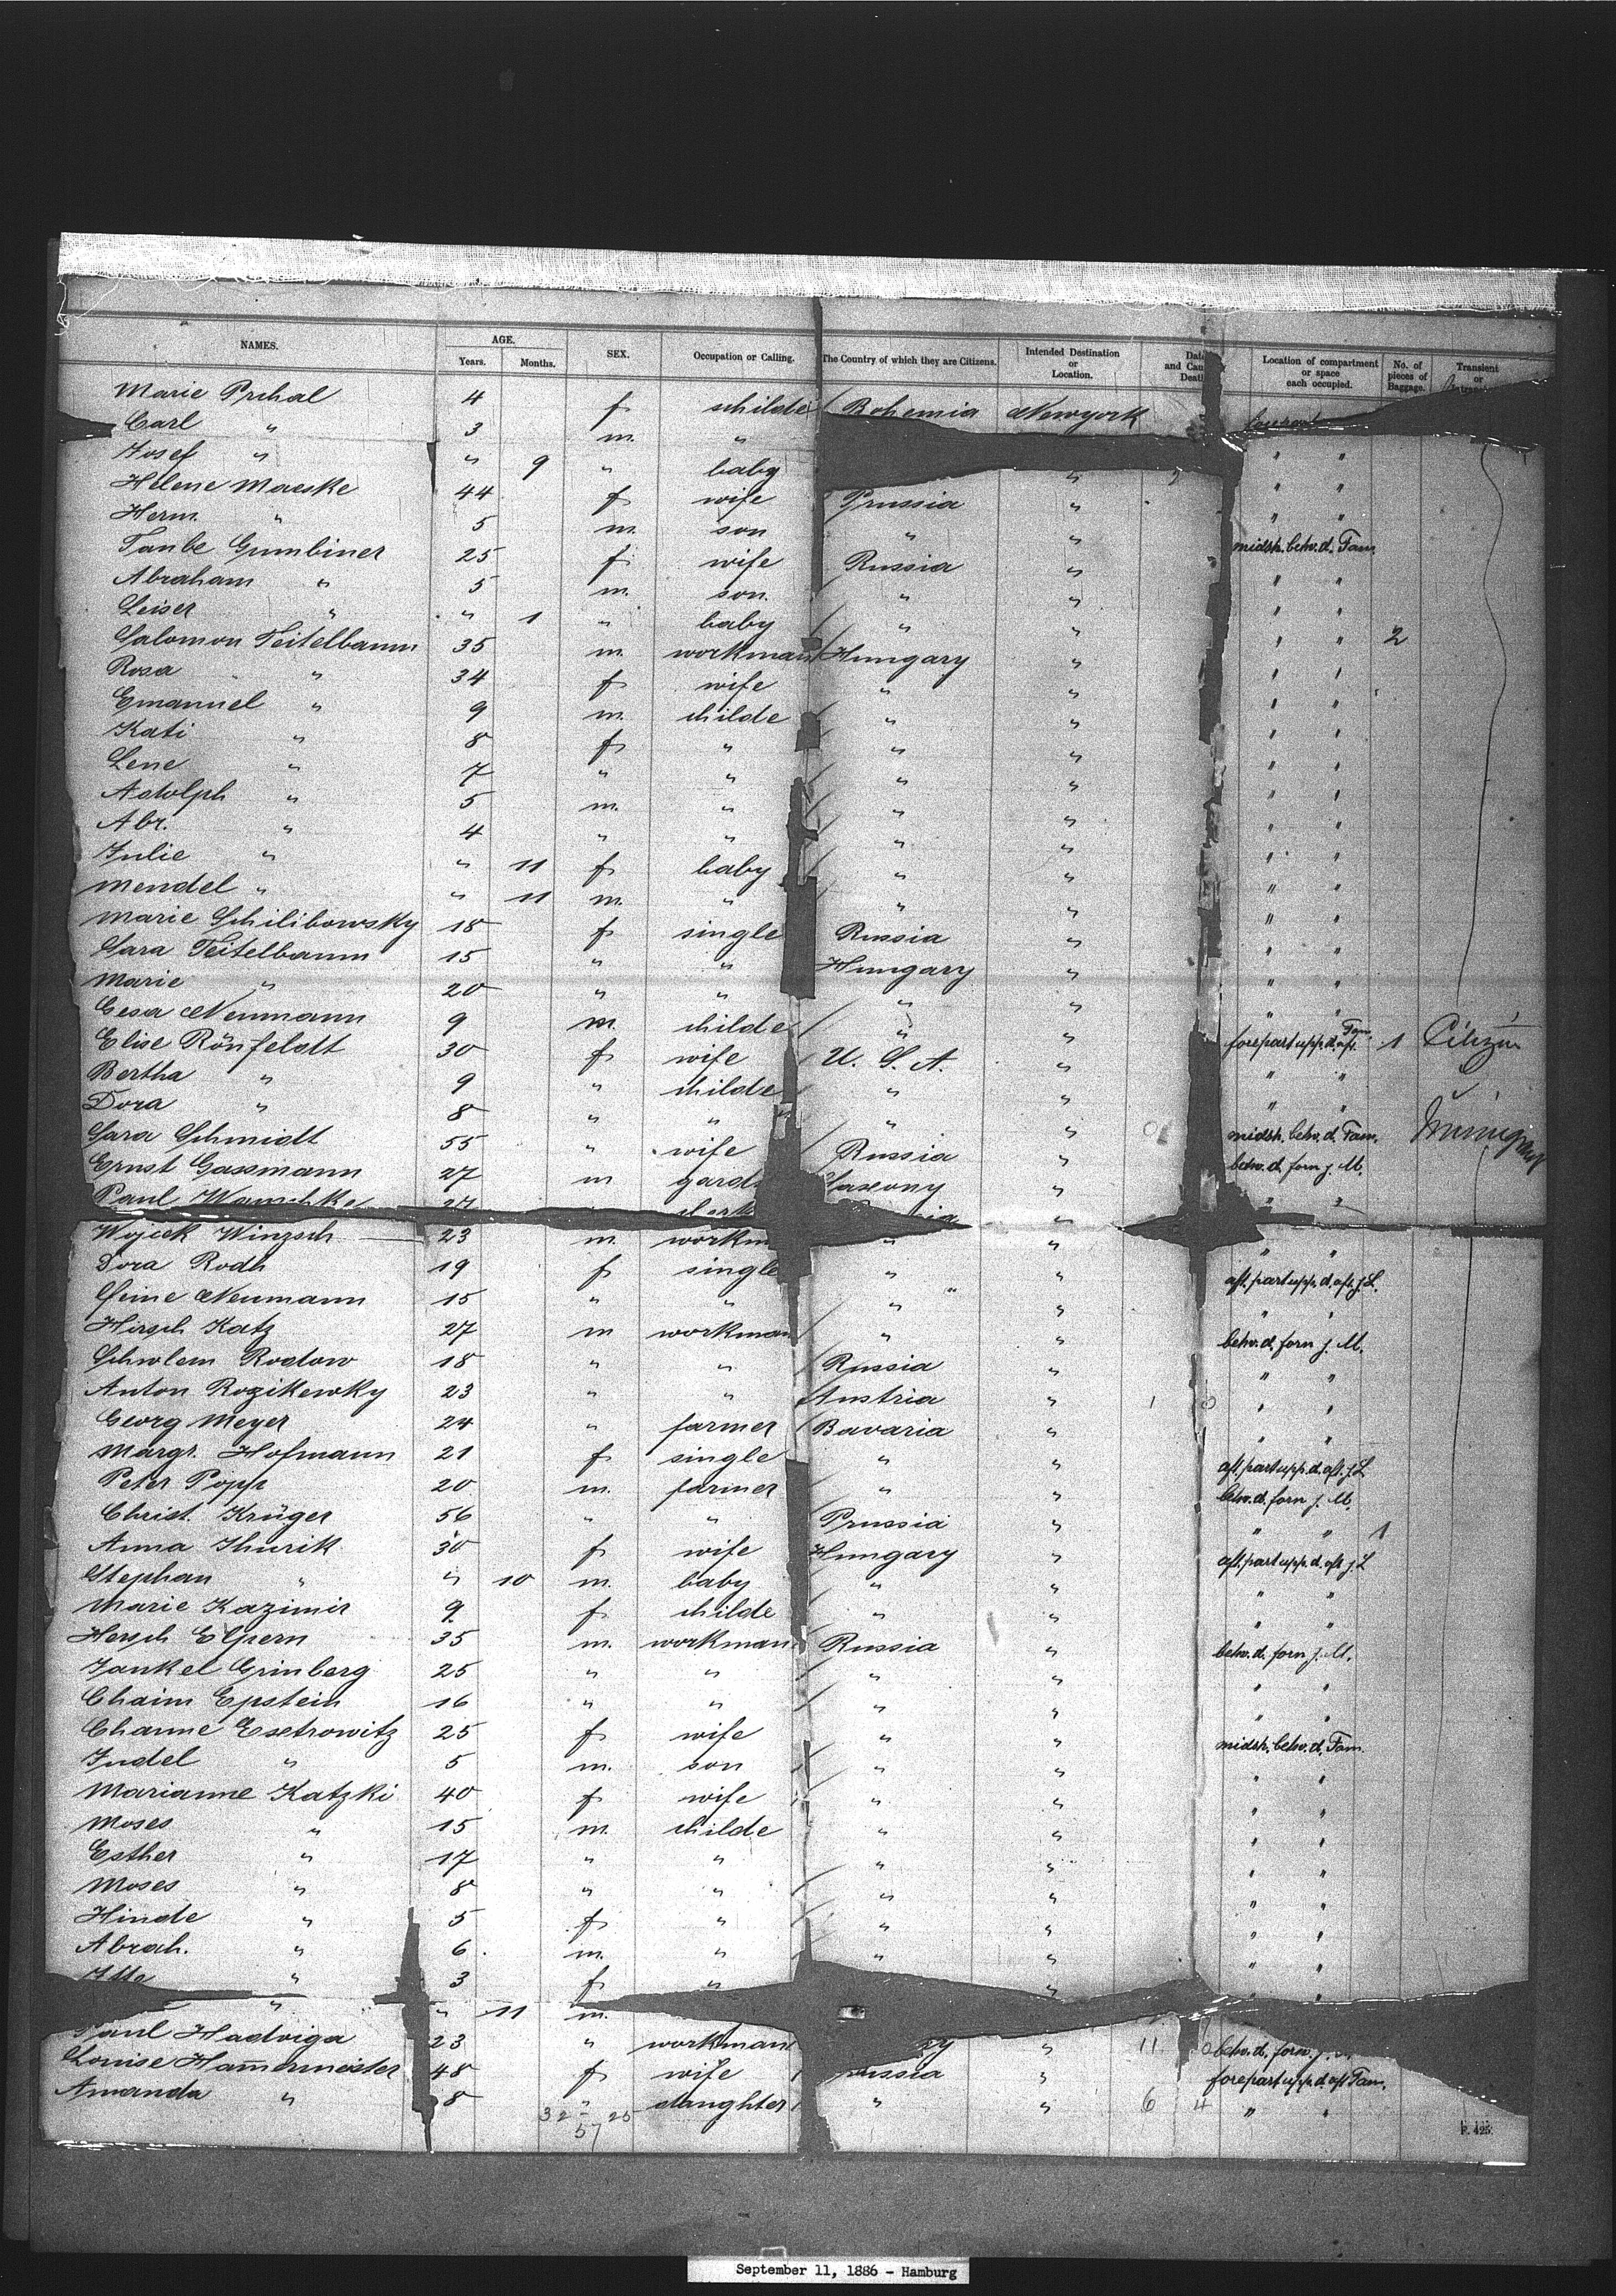 NAMES. AGE. Years. Months. SEX. Occupation or Calling. The Country of which they are Citizens. Intended Destination or Location. Location of compartment or space each occupied. No. of pieces of Baggage. Transient or
Marie Prchal 4 f childe Bohemia Newyork
Carl " 3 m. "
Josef " " 9 " baby " " "
Helene Maeske 44 f wife Prussia " " "
Herm. " 5 m. son " " " "
Taube Gumbiner 25 f wife Russia " midsh. betw. d. Fam.
Abraham " 5 m. son. " " " "
Leiser " " 1 " baby " " " "
Salomon Teitelbaum 35 m. workman Hungary " " " 2
Rosa " 34 f wife " " " "
Emanuel " 9 m. childe " " " "
Kati " 8 f " " " " "
Lene " 7 " " " " " "
Adolph " 5 m. " " " " "
Abr. " 4 " " " " " "
Julie " " 11 f baby " " " "
Mendel " " 11 m. " " " " "
Marie Schilibowsky 18 f single Russia " " "
Sara Teitelbaum 15 " " Hungary " " "
Marie " 20 " " " " " "
Gesa Neumann 9 m. childe " " " "
Elise Rönfeldt 30 f wife U. S. A. " forepart upp. d. aft. Fam. 1 Citizen
Bertha " 9 " childe " " " "
Dora " 8 " " " " " "
Sara Schmidt 55 " wife Russia " midsh. betw. d. Fam.
Ernst Gassmann 27 m Saxony " betw. d. forn j. M.
Paul " " "
Wojcek Winzsch 23 m. " " " "
Dora Rodh 19 f single " " aft. part upp. d. aft. j. L.
Seine Neumann 15 " " " " " "
Hirsch Katz 27 m workman " " betw. d. forn j. M.
Scholem Rodow 18 " " Russia " " "
Anton Rozikewky 23 " " Austria " " "
Georg Meyer 24 " farmer Bavaria " " "
Margr. Hofmann 21 f single " " aft. part upp. d. aft. j. L
Peter Popp 20 m. farmer " " betw. d. forn j. M.
Christ. Krüger 56 " " Prussia " " " 1
Anna Thurik 30 f wife Hungary " aft. part upp. d. aft. j. L
Stephan " " 10 m. baby " " " "
Marie Kazimir 9 f childe " " " "
Hersch Elpern 35 m. workman Russia " betw. d. forn j. M.
Jankel Grinberg 25 " " " " " "
Chaim Epstein 16 " " " " " "
Channe Esetrowitz 25 f wife " " midsh. betw. d. Fam.
Judel " 5 m. son " " " "
Marianne Katzki 40 f wife " " " "
Moses " 15 m. childe " " " "
Esther " 17 " " " " " "
Moses " 8 " " " " " "
Hinde " 5 f " " " " "
Abrah. " 6 m. " " " " "
" 3 f " " " "
" " 11 m.
Paul Hadviga 23 " workman " 11 betw. d. forn.
Louise Hammermeister 48 f wife " forepart upp. d. aft Fam.
Amanda " 8 " daughter " " 6 4 " "
32 - 25
57
F. 425.
September 11, 1886 - Hamburg